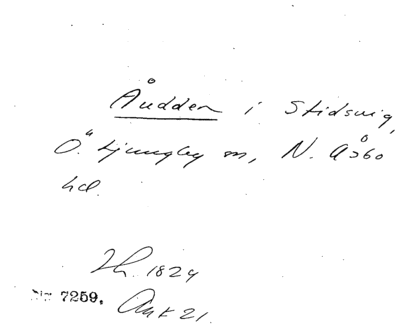 Åudden i Stidsvig,
Ö. Ljungby sn, N. Åsbo
hd.
Th. 1829
Nr 7259. Ank 21.